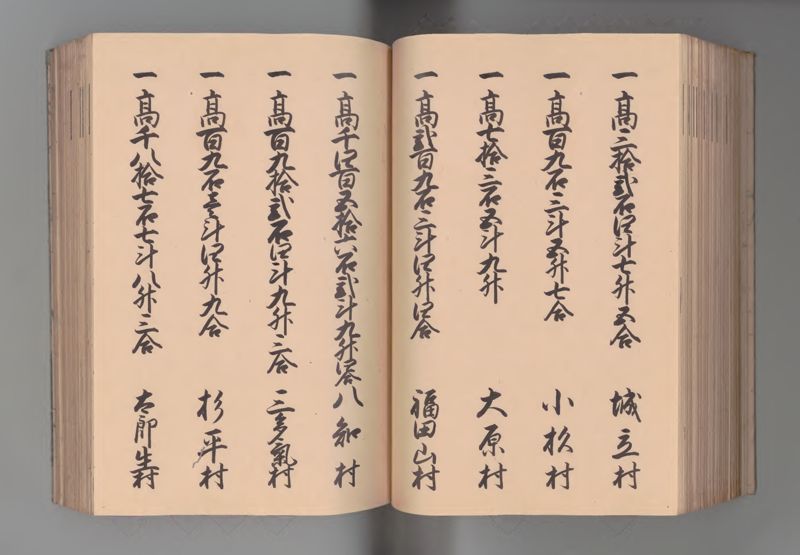 一高三拾弐石四斗七升五合 城立村
一高百九石三斗五升七合 小杉村
一高七拾三石五斗九升 大原村
一高弐百九石三斗四升四合 福田山村
一高千四百五拾六石弐斗九升四合 八知村
一高百九拾弐石四斗九升三合 三多気村
一高百九石壱斗四升九合 杉平村
一高千八拾七石七斗八升三合 太郎生村